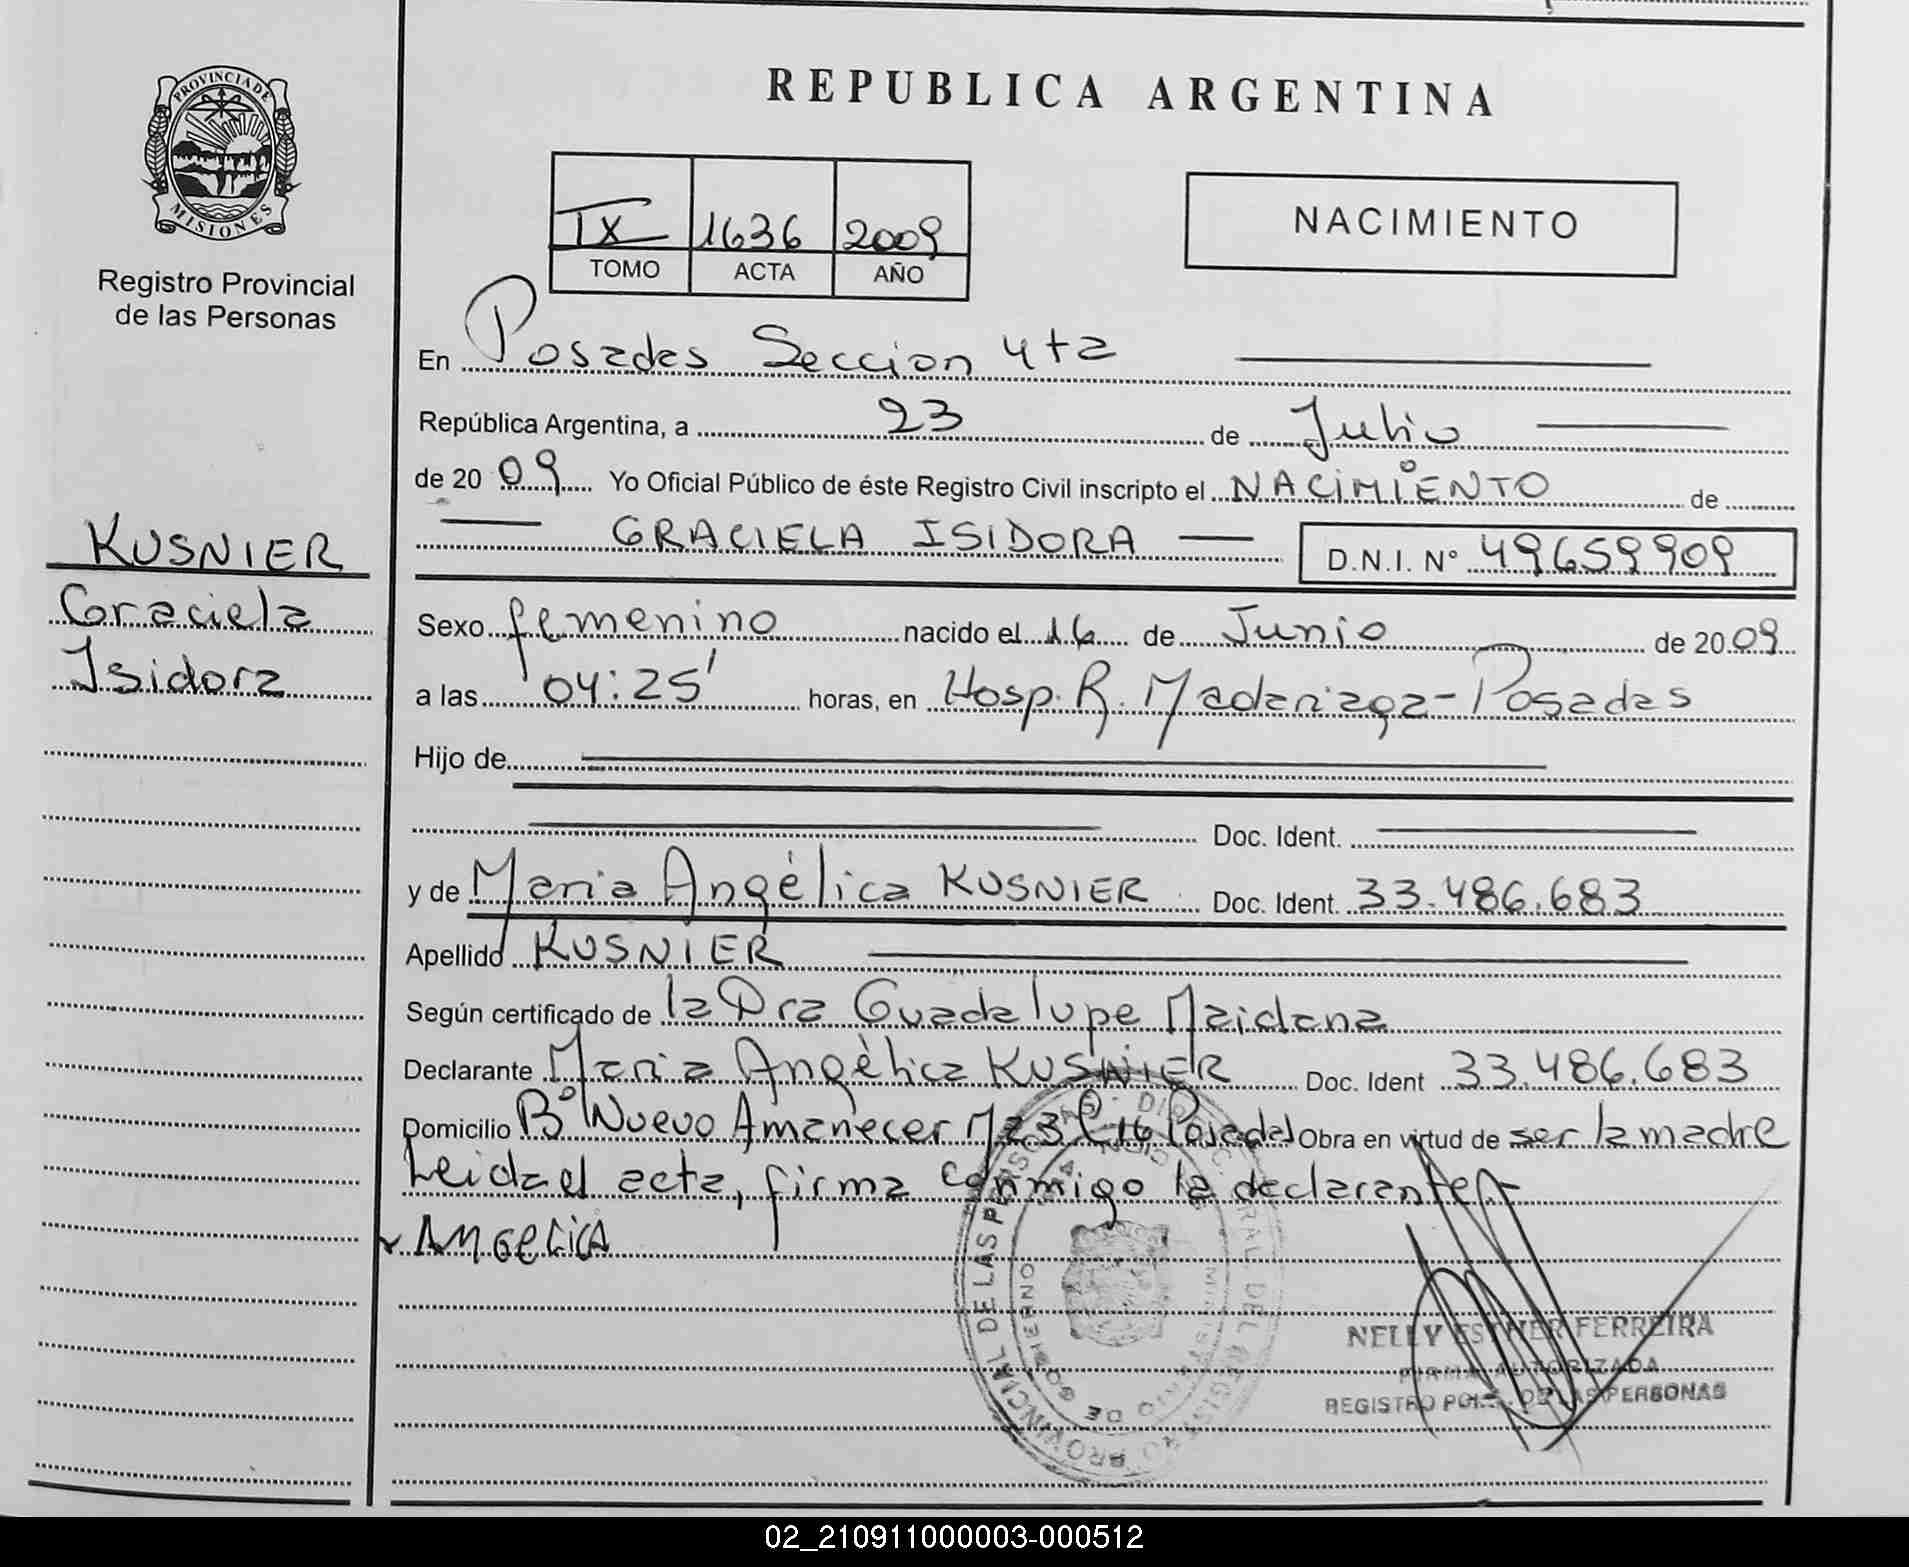 REPUBLICA ARGENTINA
PROVINCIA DE
MISIONES
Registro Provincial
de las Personas
IX 1636 2009
TOMO ACTA AÑO
NACIMIENTO
En Posadas Seccion 4ta
República Argentina, a 23 de Julio
de 2009 Yo Oficial Público de éste Registro Civil inscripto el NACIMIENTO de
GRACIELA ISIDORA D.N.I. Nº 49659909
KUSNIER
Graciela
Isidora
Sexo femenino nacido el 16 de Junio de 2009
a las 04:25' horas, en Hosp. R. Madariaga-Posadas
Hijo de
Doc. Ident.
y de Maria Angélica KUSNIER Doc. Ident. 33.486.683
Apellido KUSNIER
Según certificado de la Dra Guadalupe Maidana
Declarante Maria Angélica KUSNIER Doc. Ident 33.486.683
Domicilio Bº Nuevo Amanecer Mz3 C16 Posadas Obra en virtud de ser la madre
Leida el acta, firma conmigo la declarante
ANGELICA
DIRECC. GENERAL DEL REGISTRO PROVINCIAL DE LAS PERSONAS
MINISTERIO DE GOBIERNO
NELLY ESTHER FERREIRA
FIRMA AUTORIZADA
REGISTRO DE LAS PERSONAS
02_210911000003-000512